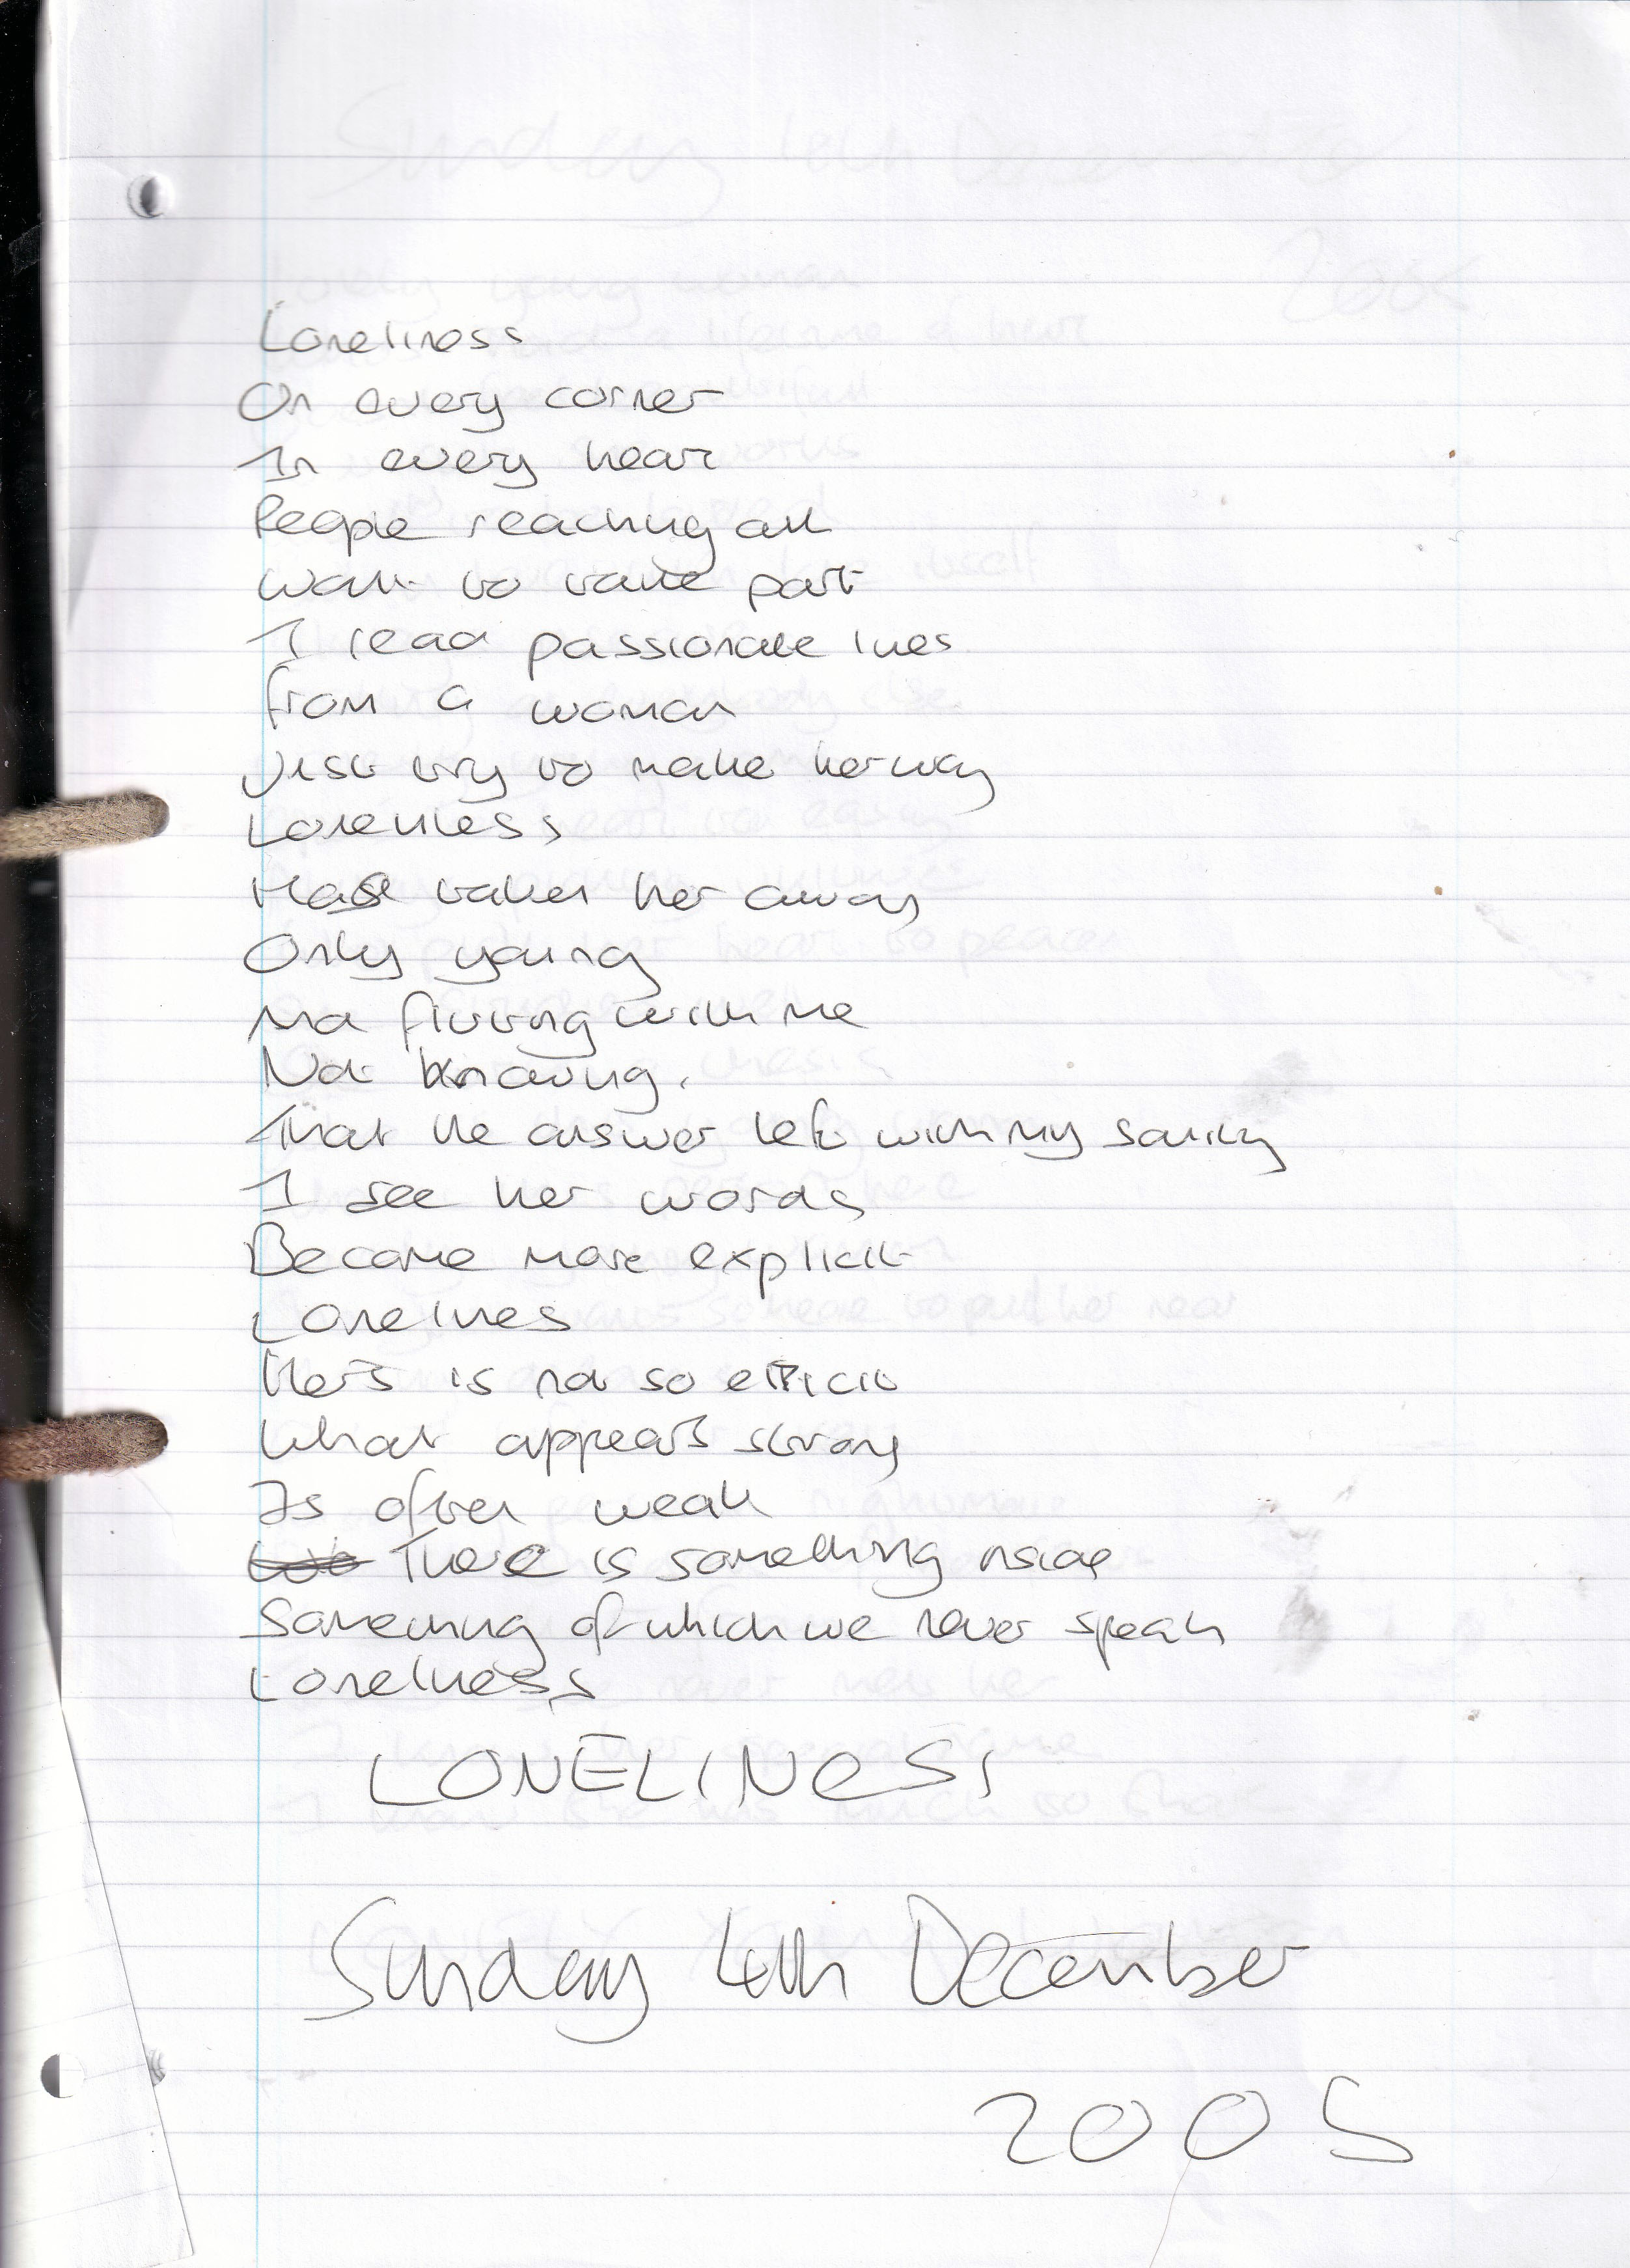 Loneliness
On every corner
In every heart
People reaching out
Want to take part
I read passionate lines
from a woman
Just try to make her way
Loneliness
Has taken her away
Only young
And flirting with me
Not knowing,
That the answer left with my sanity
I see her words
Become more explicit
Lonelines
Hers is not so elicit
What appears strong
Is often weak
There is something inside
Something of which we never speak
Loneliness
LONELINESS
Sunday 4th December
2005